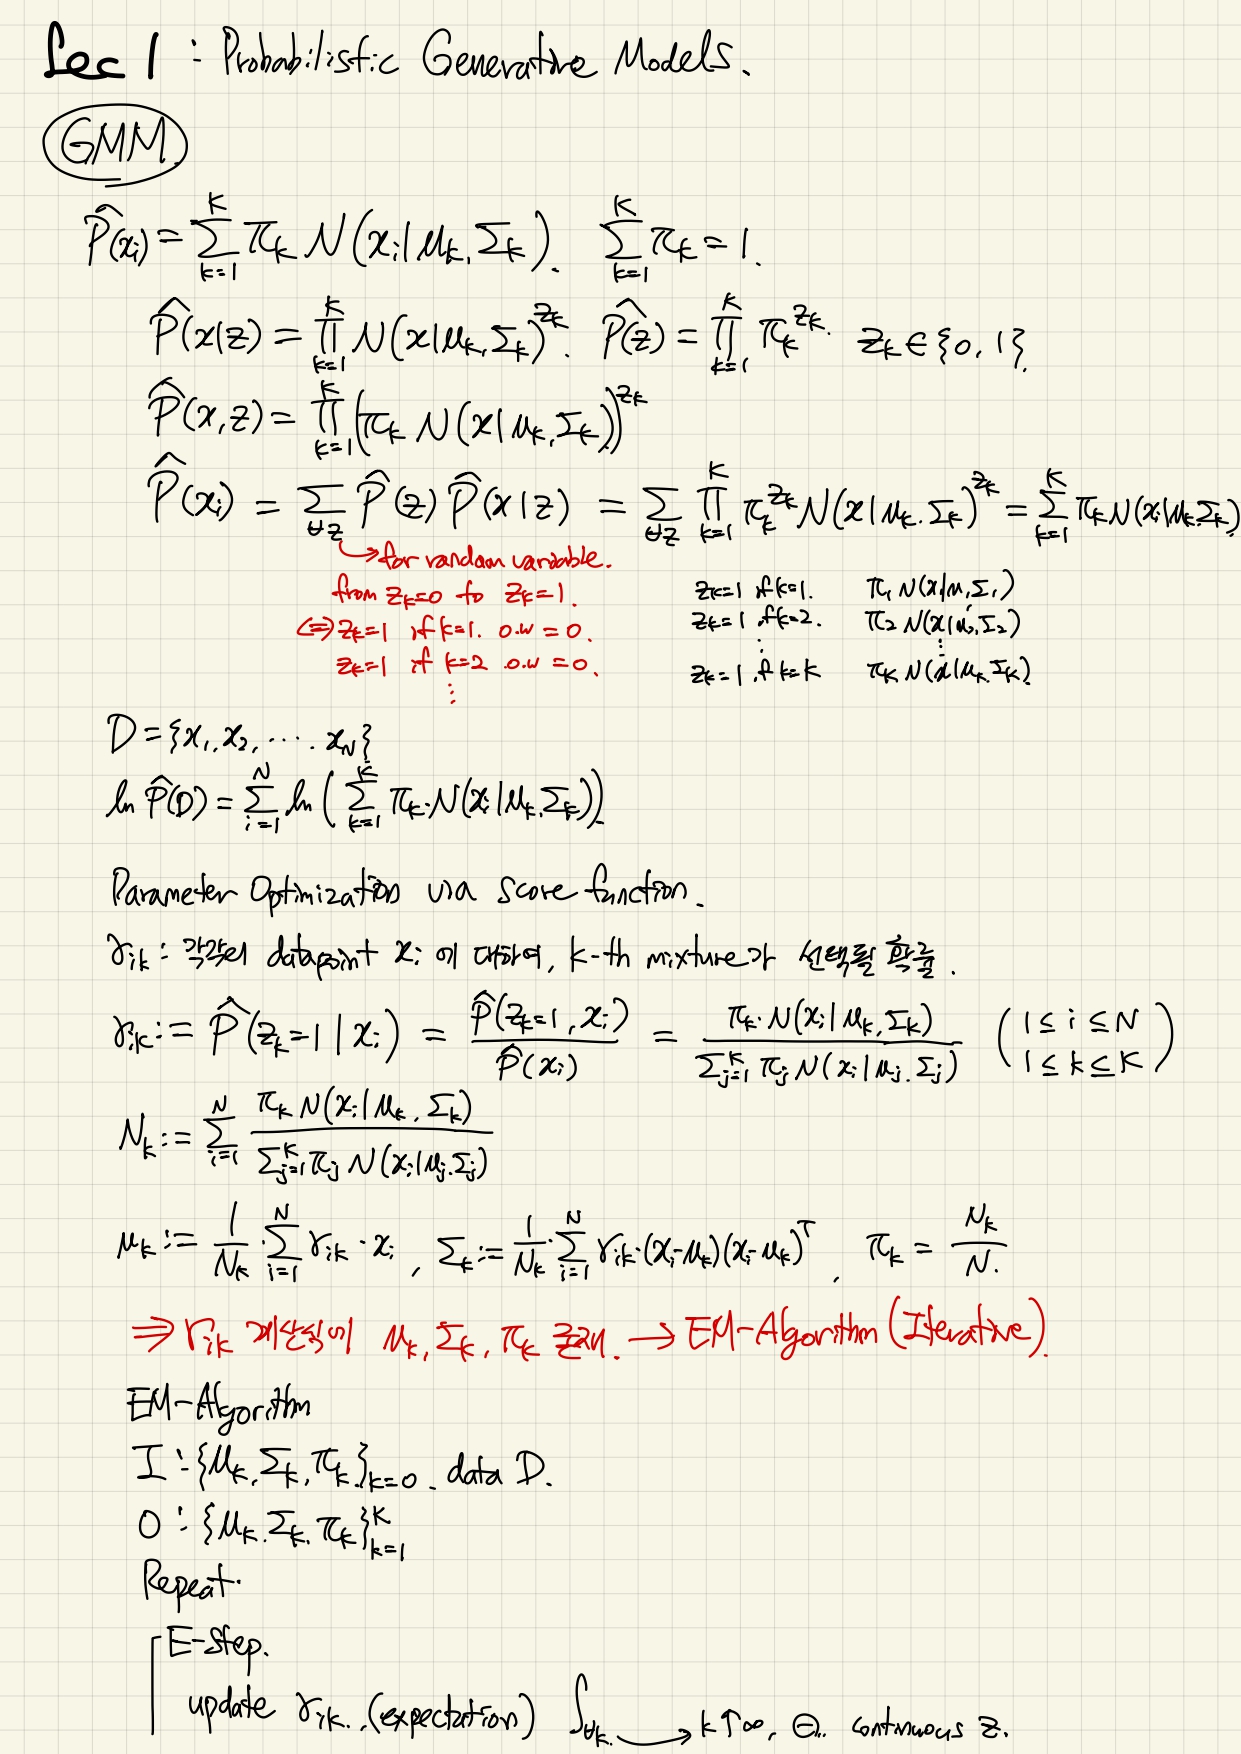 Lec 1 : Probabilistic Generative Models.
GMM.
P̂(xᵢ) = ∑_{k=1}^{K} π_k N(xᵢ|μ_k, Σ_k). ∑_{k=1}^{K} π_k = 1.
P̂(x|z) = ∏_{k=1}^{K} N(x|μ_k, Σ_k)^{z_k}. P̂(z) = ∏_{k=1}^{K} π_k^{z_k}. z_k ∈ {0, 1}.
P̂(x, z) = ∏_{k=1}^{K} (π_k N(x|μ_k, Σ_k))^{z_k}
P̂(xᵢ) = ∑_{∀z} P̂(z) P̂(x|z) = ∑_{∀z} ∏_{k=1}^{K} π_k^{z_k} N(x|μ_k, Σ_k)^{z_k} = ∑_{k=1}^{K} π_k N(xᵢ|μ_k, Σ_k)
→ for random variable.
from z_k=0 to z_k=1.
⇔ z_k=1 if k=1. o.w = 0.
z_k=1 if k=2 o.w = 0.
⋮
z_k=1 if k=1. π₁ N(x|μ₁, Σ₁)
z_k=1 if k=2. π₂ N(x|μ₂, Σ₂)
⋮ ⋮
z_k=1 if k=K π_K N(x|μ_K, Σ_K)
D = {x₁, x₂, ···· x_N}
ln P̂(D) = ∑_{i=1}^{N} ln ( ∑_{k=1}^{K} π_k·N(xᵢ|μ_k, Σ_k))
Parameter Optimization via score function.
γ_{ik} : 각각의 datapoint xᵢ 에 대하여, k-th mixture가 선택될 확률.
γ_{ik} := P̂(z_k=1 | xᵢ) = P̂(z_k=1, xᵢ) / P̂(xᵢ) = π_k·N(xᵢ|μ_k, Σ_k) / ∑_{j=1}^{K} π_j N(xᵢ|μ_j, Σ_j) ( 1 ≤ i ≤ N 1 ≤ k ≤ K )
N_k := ∑_{i=1}^{N} π_k N(xᵢ|μ_k, Σ_k) / ∑_{j=1}^{K} π_j N(xᵢ|μ_j, Σ_j)
μ_k := 1/N_k · ∑_{i=1}^{N} γ_{ik} · xᵢ , Σ_k := 1/N_k · ∑_{i=1}^{N} γ_{ik}·(xᵢ-μ_k)(xᵢ-μ_k)^T, π_k = N_k / N.
⇒ γ_{ik} 계산식에 μ_k, Σ_k, π_k 존재. → EM-Algorithm (Iterative).
EM-Algorithm
I : {μ_k, Σ_k, π_k}_{k=0}. data D.
O : {μ_k, Σ_k, π_k}_{k=1}^{K}
Repeat.
E-step.
update γ_{ik}. (expectation) ∫_{∀k} → k↑∞, ⊖.. continuous z.